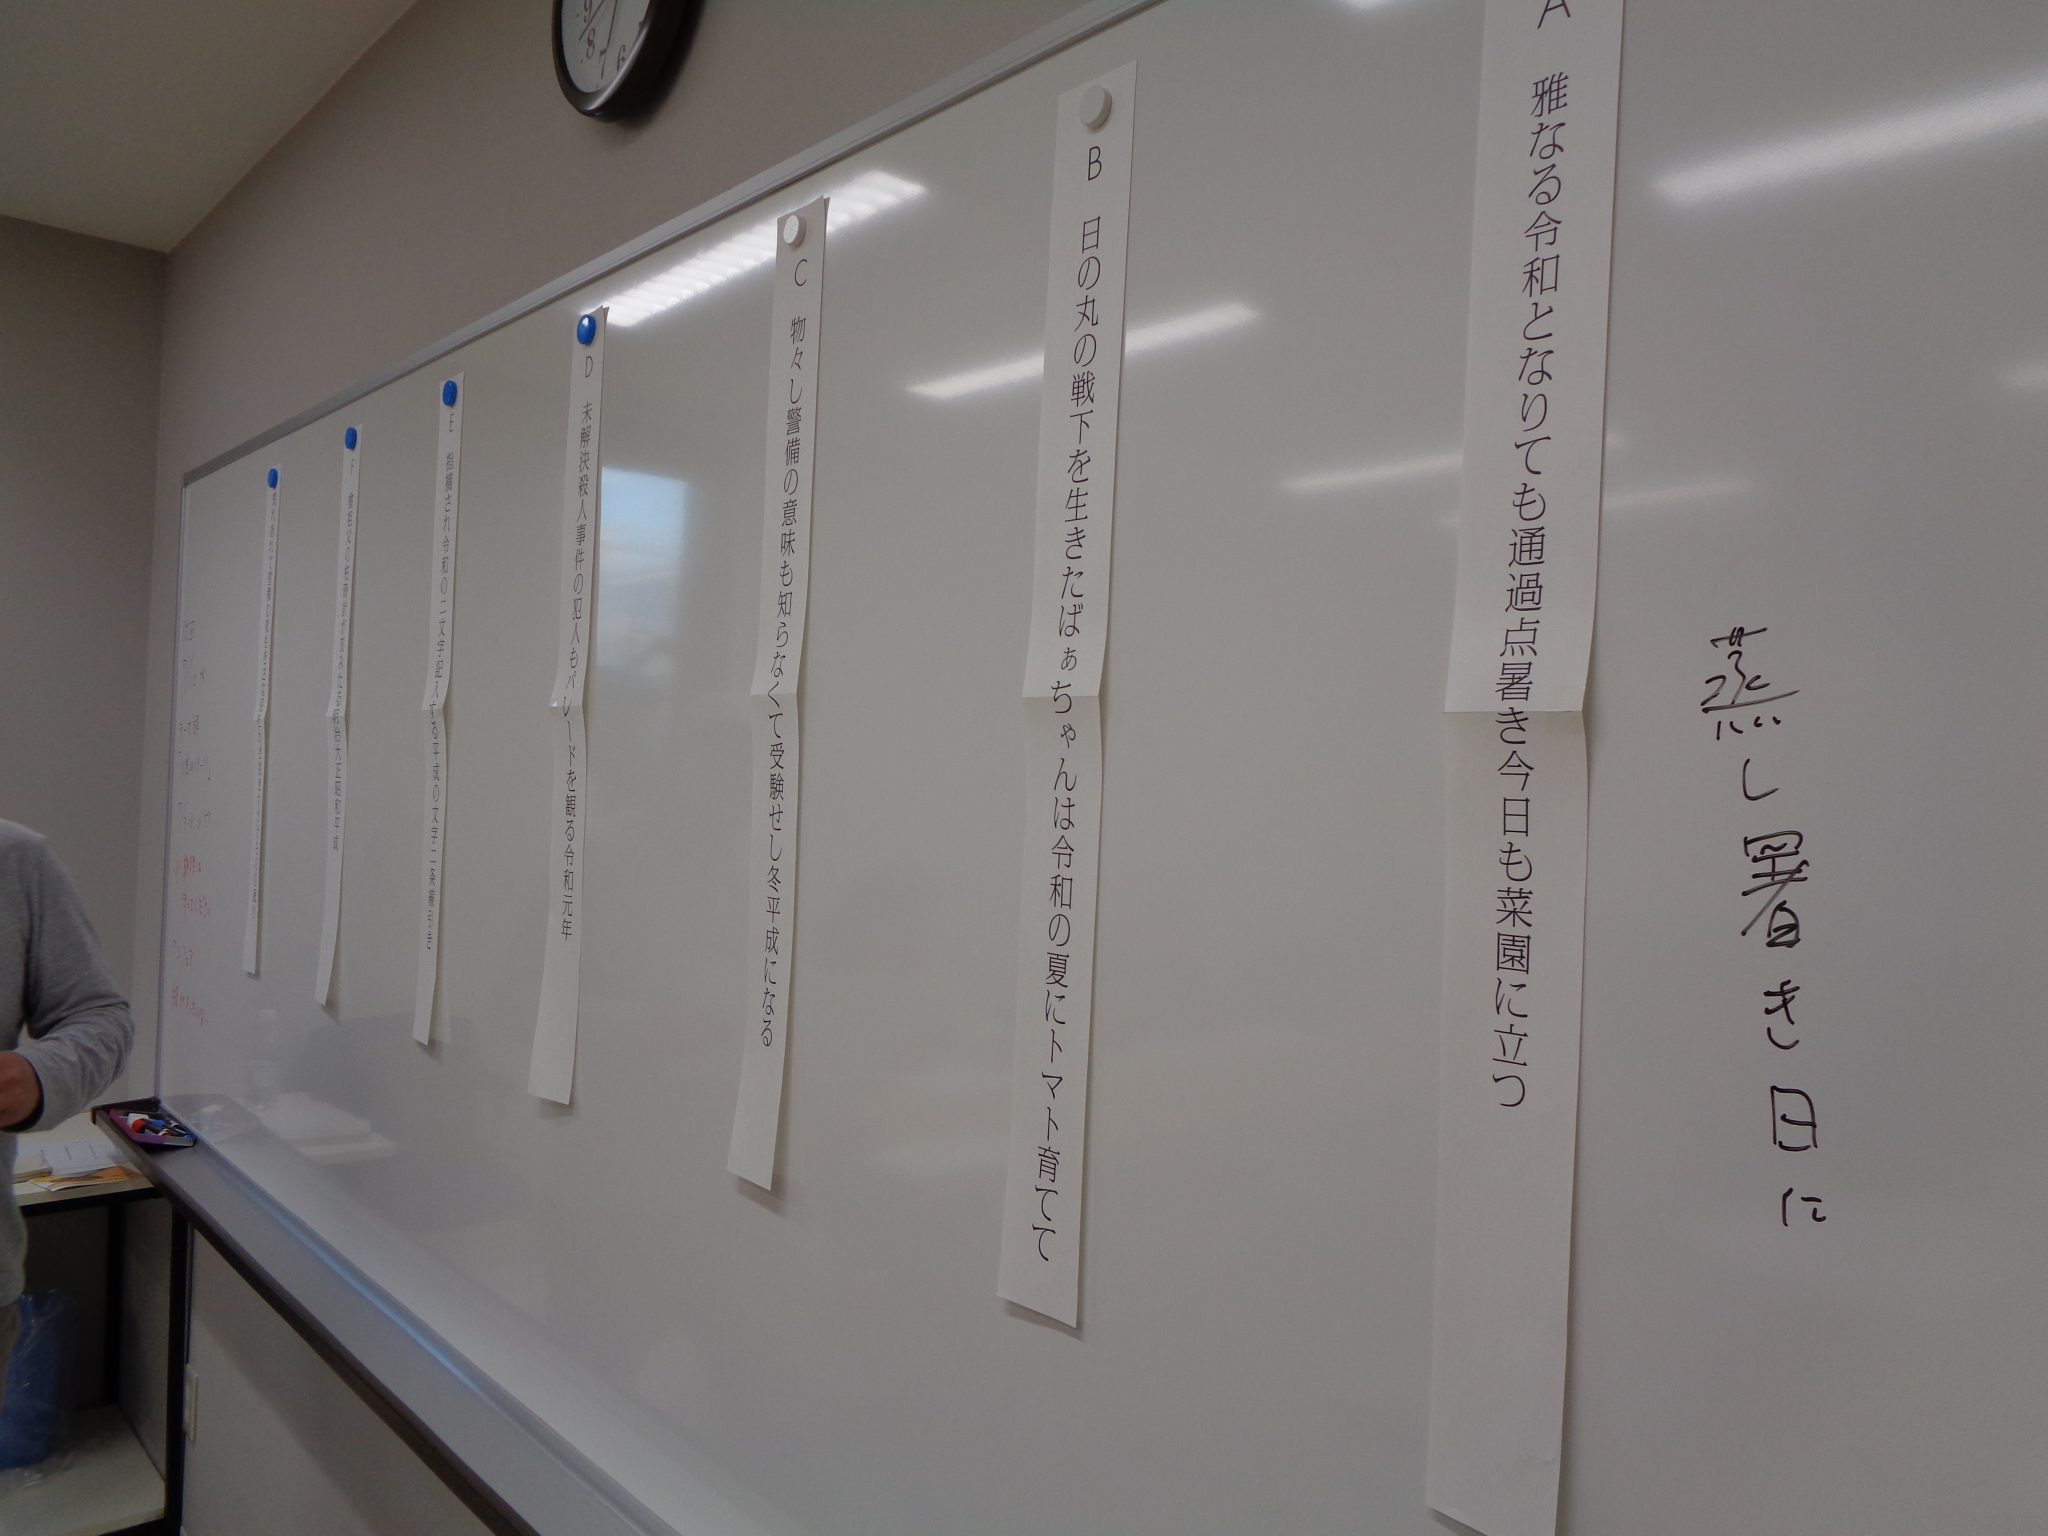 蒸し暑き日に
A 雅なる令和となりても通過点暑き今日も菜園に立つ
B 日の丸の戦下を生きたばぁちゃんは令和の夏にトマト育てて
C 物々し警備の意味も知らなくて受験せし冬平成になる
D 未解決殺人事件の犯人もパレードを観る令和元年
E 指摘され令和の二文字記入する平成の文字二条線引き
F 曾祖父の柱時計が刻みたる明治大正昭和平成
9
8
7
6